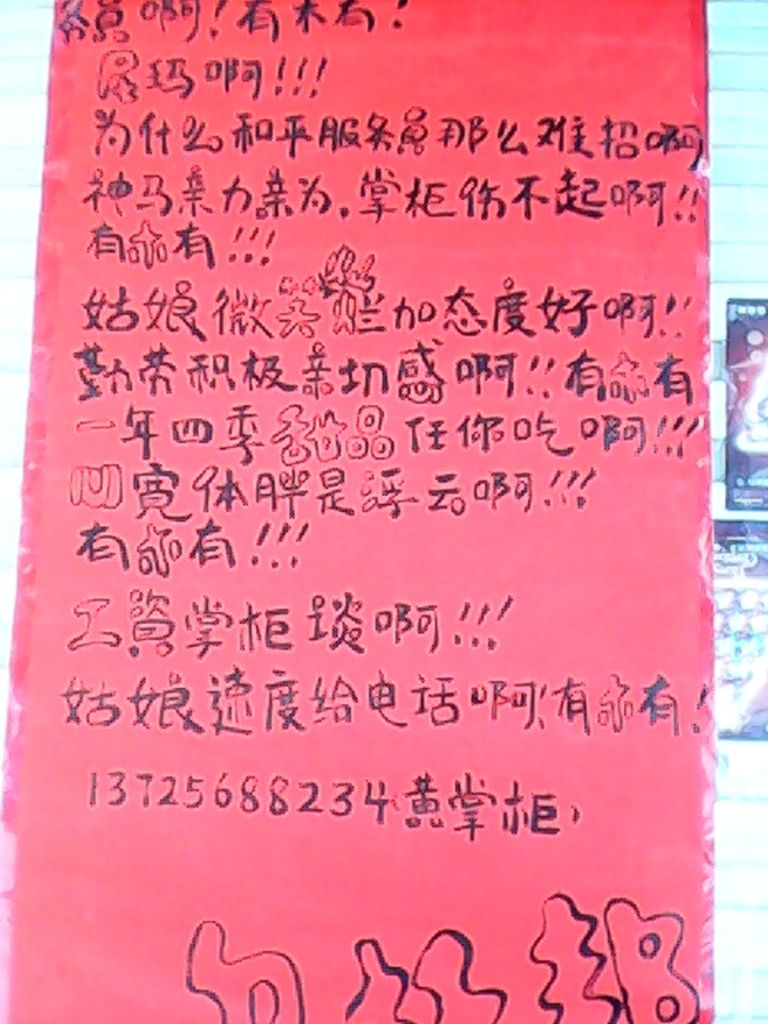 务员啊！有木有！
尼玛啊!!!
为什么和平服务员那么难招啊
神马亲力亲为，掌柜伤不起啊!!
有木有!!!
姑娘微笑灿烂加态度好啊!!
勤劳积极亲切感啊!!有木有
一年四季甜品任你吃啊!!!
凹宽体胖是浮云啊!!!
有木有!!!
工資掌柜谈啊!!!
姑娘速度给电话啊!有木有!
13725688234黄掌柜